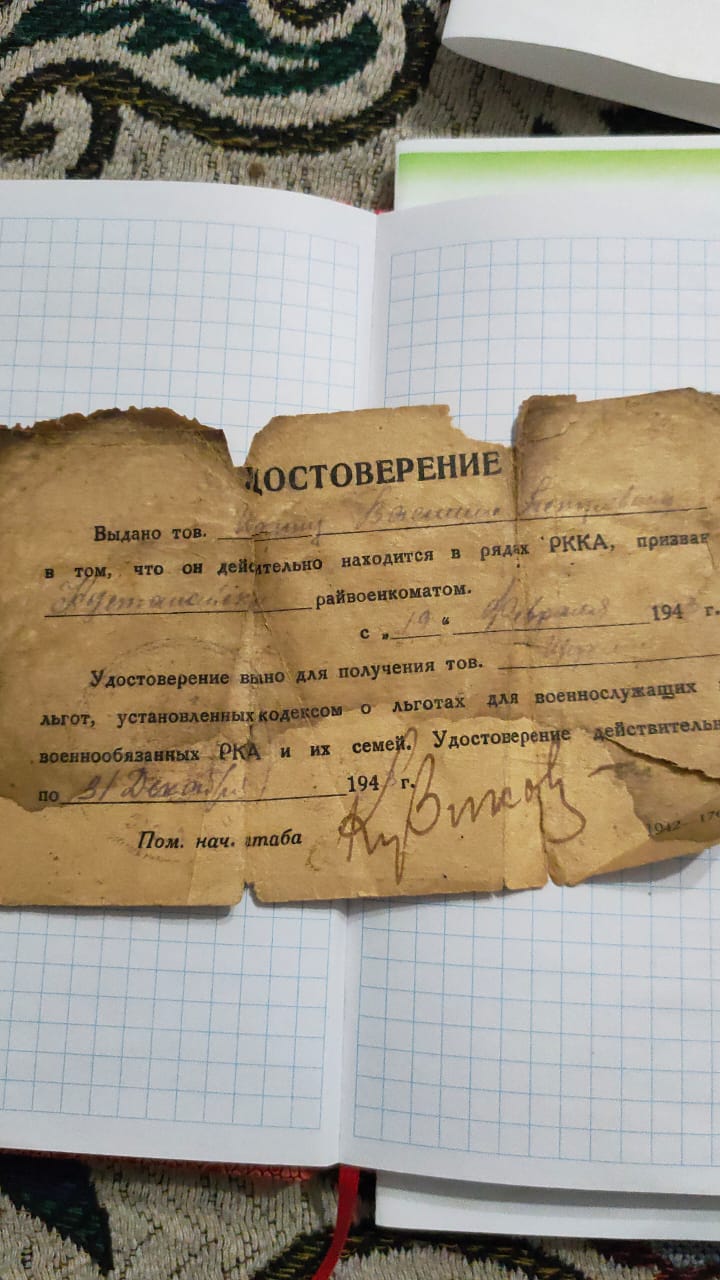 ДОСТОВЕРЕНИЕ
Выдано тов.
в том, что он действительно находится в рядах РККА, призван
райвоенкоматом.
с „ 19 “ Февраля 194 г.
Удостоверение выно для получения тов.
льгот, установленных кодексом о льготах для военнослужащих
военнообязанных РКА и их семей. Удостоверение действительн
по 31 Декабря 194 г.
Пом. нач. таба
1942